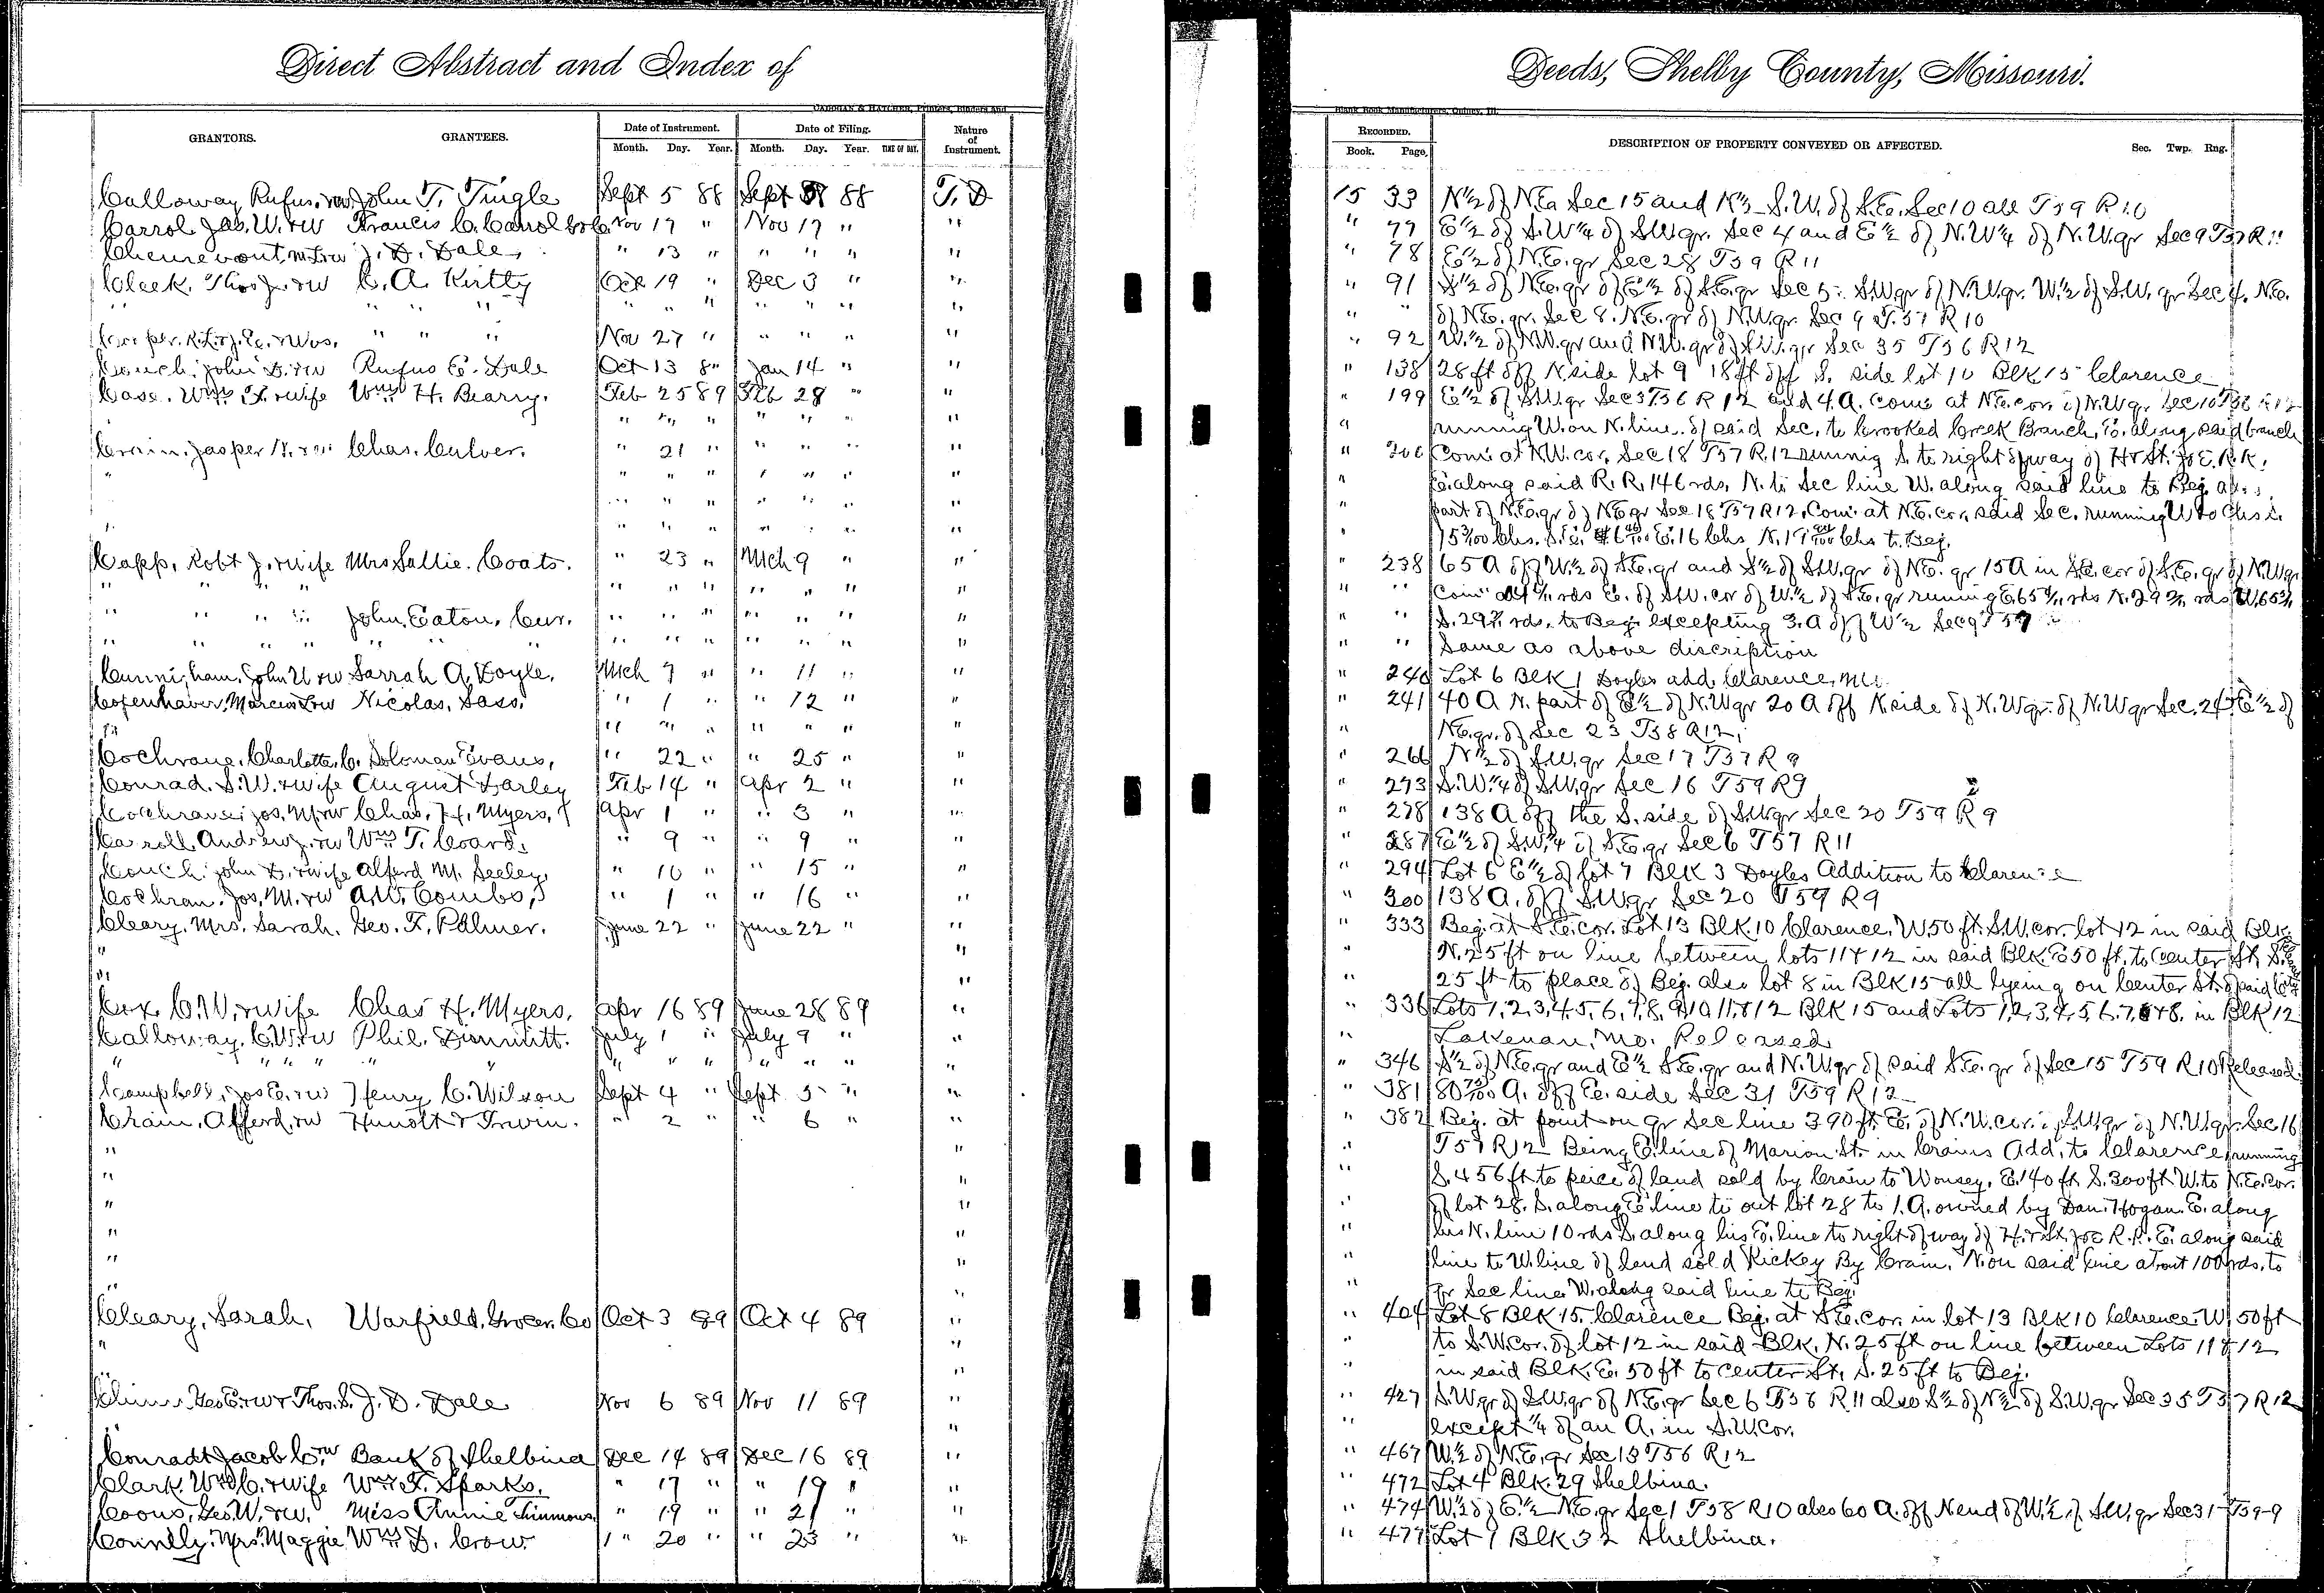 Direct Abstract and Index of
Deeds, Shelby County, Missouri.
CADOGAN & HATCHER, Printers, Binders and
Blank Book Manufacturers, Quincy, Ill.
GRANTORS. GRANTEES. Date of Instrument. Date of Filing. Nature of Instrument.
Month. Day. Year. Month. Day. Year. TIME OF DAY.
RECORDED. DESCRIPTION OF PROPERTY CONVEYED OR AFFECTED. Sec. Twp. Rng.
Book. Page.
Calloway Rufus, rw John T. Tingle Sept 5 88 Sept 88 T. D 15 33 N½ of N.E. Sec 15 and S.W. of S.E. Sec 10 all T59 R10
Carrol Jas. W. rw Francis C. Carrol Nov 17 " Nov 17 " " " 77 E½ of S.W¼ of S.W.qr. Sec 4 and E½ of N.W¼ of N.W.qr Sec 9 T57 R11
J. D. Dale " 13 " " " " " " 78 E½ of N.E.qr Sec 28 T59 R11
Cleek. Thos J. rw C. A. Kirtty Oct 19 " Dec 3 " " " 91 of N.E.qr of E½ of S.E.qr Sec 5. S.W.qr of N.W.qr. W½ of S.W. qr Sec 4. N.E.
" " " " " " " " " " " of N.E. qr. Sec 8. N.E. qr of N.W.qr Sec 9 T.57 R10
" " Nov 27 " " " " " " 92 W½ of N.W.qr and N.W.qr of S.W.qr Sec 35 T56 R12
Couch, John D. rw Rufus E. Dale Oct 13 8" Jan 14 " " " 138 28 ft off N side lot 9 18 ft off S. side lot 10 Blk 15 Clarence
Case. Wm. F. rwife Wm H. Bearry. Feb 25 89 Feb 28 " " " 199 E½ of S.W.qr Sec 3 T56 R12 and 4. A. Com: at N.E. cor. of N.W.qr. Sec 10 T56 R12
" " " " " " " " running W. on N. line. of said Sec. to Crooked Creek Branch, E. along said branch
Crain, Jasper N. rw Chas. Culver. " 21 " " " " " " 200 Com: at N.W. cor. Sec 18 T57 R.12 running S. to right of way of H & St. Jo E. R.R.
" " " " " " " " " E. along said R.R. 146 rds. N. to Sec line W. along said line to Beg. also
" " " " " " " " part of N.E.qr of N.E.qr Sec 18 T57 R12, Com: at N.E. cor. said Sec. running W
" " " " " " " " " E. 16 Chs N. Chs to Beg.
Capp, Robt J. rwife Mrs Sallie. Coats. " 23 " Mch 9 " " " 238 65 A off W½ of S.E.qr and S½ of S.W.qr of N.E. qr 15 A in S.E. cor of S.E. qr of N.W.qr.
" " " " " " " " " " " Com: at rds E. of S.W. cor of W½ of S.E. qr running E. rds N. rds W.
" " " " John Eaton, Cur. " " " " " " " " " S. rds. to Beg. excepting 3. A off W½ Sec 9 T57
" " " " " " " " " " " " " " Same as above discription
Cunningham. John W rw Sarrah A. Doyle. Mch 7 " " 11 " " " 240 Lot 6 Blk 1 Doyles add. Clarence, Mo.
Copenhaver, Marcus L rw Nicolas, Sass. " 1 " " 12 " " " 241 40 A N. part of E½ of N.W.qr 20 A off N side of N.W.qr. of N.W.qr Sec. 24 E½ of
" " " " " " " " " N.E.qr. of Sec 23 T58 R12.
Cochrane. Charlotte, C. Soloman Evans, " 22 " " 25 " " " 266 N½ of S.W.qr Sec 17 T57 R 9
Conrad. S. W. rwife August Farley Feb 14 " Apr 2 " " " 273 S.W.¼ of S.W.qr Sec 16 T59 R9
Cochrane, Jos. M. rw Chas. H. Myers, Apr 1 " " 3 " " " 278 138 A off the S. side of S.W.qr Sec 20 T59 R 9
Carroll Andrew J. rw Wm T. Coard. " 9 " " 9 " " " 287 E½ of S.W.¼ of S.E.qr Sec 6 T57 R11
Couch. John D. rwife Alferd M. Seeley " 10 " " 15 " " " 294 Lot 6 E½ of lot 7 Blk 3 Doyles Addition to Clarence
Cochran. Jos. M. rw A.W. Combs, " 1 " " 16 " " " 300 138 A. off S.W.qr Sec 20 T59 R9
Cleary, Mrs. Sarah. Geo. F. Palmer. June 22 " June 22 " " " 333 Beg. at S.E. cor. Lot 13 Blk. 10 Clarence. W. 50 ft. S.W. cor. lot 12 in said Blk.
" " " N. 25 ft on line between lots 11 & 12 in said Blk. E 50 ft. to Center St. S.
" " " 25 ft to place of Beg. also lot 8 in Blk 15 all lying on Center St. of said City
Cox C. W. rwife Chas H. Myers, Apr 16 89 June 28 89 " " 336 Lots 1, 2, 3, 4, 5, 6, 7, 8, 9, 10 11, & 12 Blk 15 and Lots 1, 2, 3, 4, 5, 6, 7, & 8. in Blk 12
Calloway, C.W. rw Phil. Dimmitt. July 1 " July 9 " " " Lakenan, Mo. Released
" " " " " " " " " " " " " 346 S½ of N.E.qr and E½ S.E. qr and N.W.qr of said S.E. qr of Sec 15 T59 R10 Released.
Campbell, Jos E. rw Henry C. Wilson Sept 4 " Sept. 5 " " " 381 80 A. off E. side Sec 31 T59 R12
Crain, Afferd, rw Hunolt & Irwin. " 2 " " 6 " " " 382 Beg. at point on qr Sec line 390 ft. E. of N.W. cor. of S.W.qr of N.W.qr. Sec 16
" " " T57 R12 Being E. line of Marion St. in Crains Add. to Clarence, running
" " " S. 456 ft to peice of land sold by Crain to Wonsey, E. 140 ft S. 300 ft W. to N.E. cor.
" " " of lot 28. S. along E line to out lot 28 to 1. A. owned by Dan. Hogan. E. along
" " " his N. line 10 rds S. along his E. line to right of way of H. & St. Joe R.R. E. along said
" " " line to W. line of land sold Rickey By Crain. N. on said line about 100 rds. to
" " " qr Sec line. W. along said line to Beg.
Cleary, Sarah, Warfield, Grocer. Co Oct 3 89 Oct 4 89 " " 404 Lot 8 Blk 15, Clarence Beg. at S.E. cor. in lot 13 Blk 10 Clarence. W. 50 ft
" " " to S.W. Cor. of lot 12 in said Blk. N. 25 ft on line between Lots 11 & 12
" " in said Blk. E. 50 ft to center St. S. 25 ft to Beg.
Geo E. rw & Thos. S. J. D. Dale Nov 6 89 Nov 11 89 " " 427 S.W.qr of S.W.qr of N.E.qr Sec 6 T56 R 11 also S½ of N½ of S.W.qr Sec 35 T57 R12
" " except ¼ of an A. in S.W. Cor.
Conradt Jacob C. rw Bank of Shelbina Dec 14 89 Dec 16 89 " " 467 W½ of N.E. qr Sec 13 T56 R12
Clark. Wm C. rwife Wm F. Sparks. " 17 " " 19 " " " 472 Lot 4 Blk. 29 Shelbina.
Coons, Geo. W. rw. Miss Annie Simmons. " 19 " " 21 " " " 474 W½ of E½ N.E. qr Sec 1 T58 R10 also 60 A. off N end of W½ of S.W. qr Sec 31-T59-9
Connlly. Mrs. Maggie Wm D. Crow. " 20 " " 23 " " " 477 Lot 1 Blk 32 Shelbina.